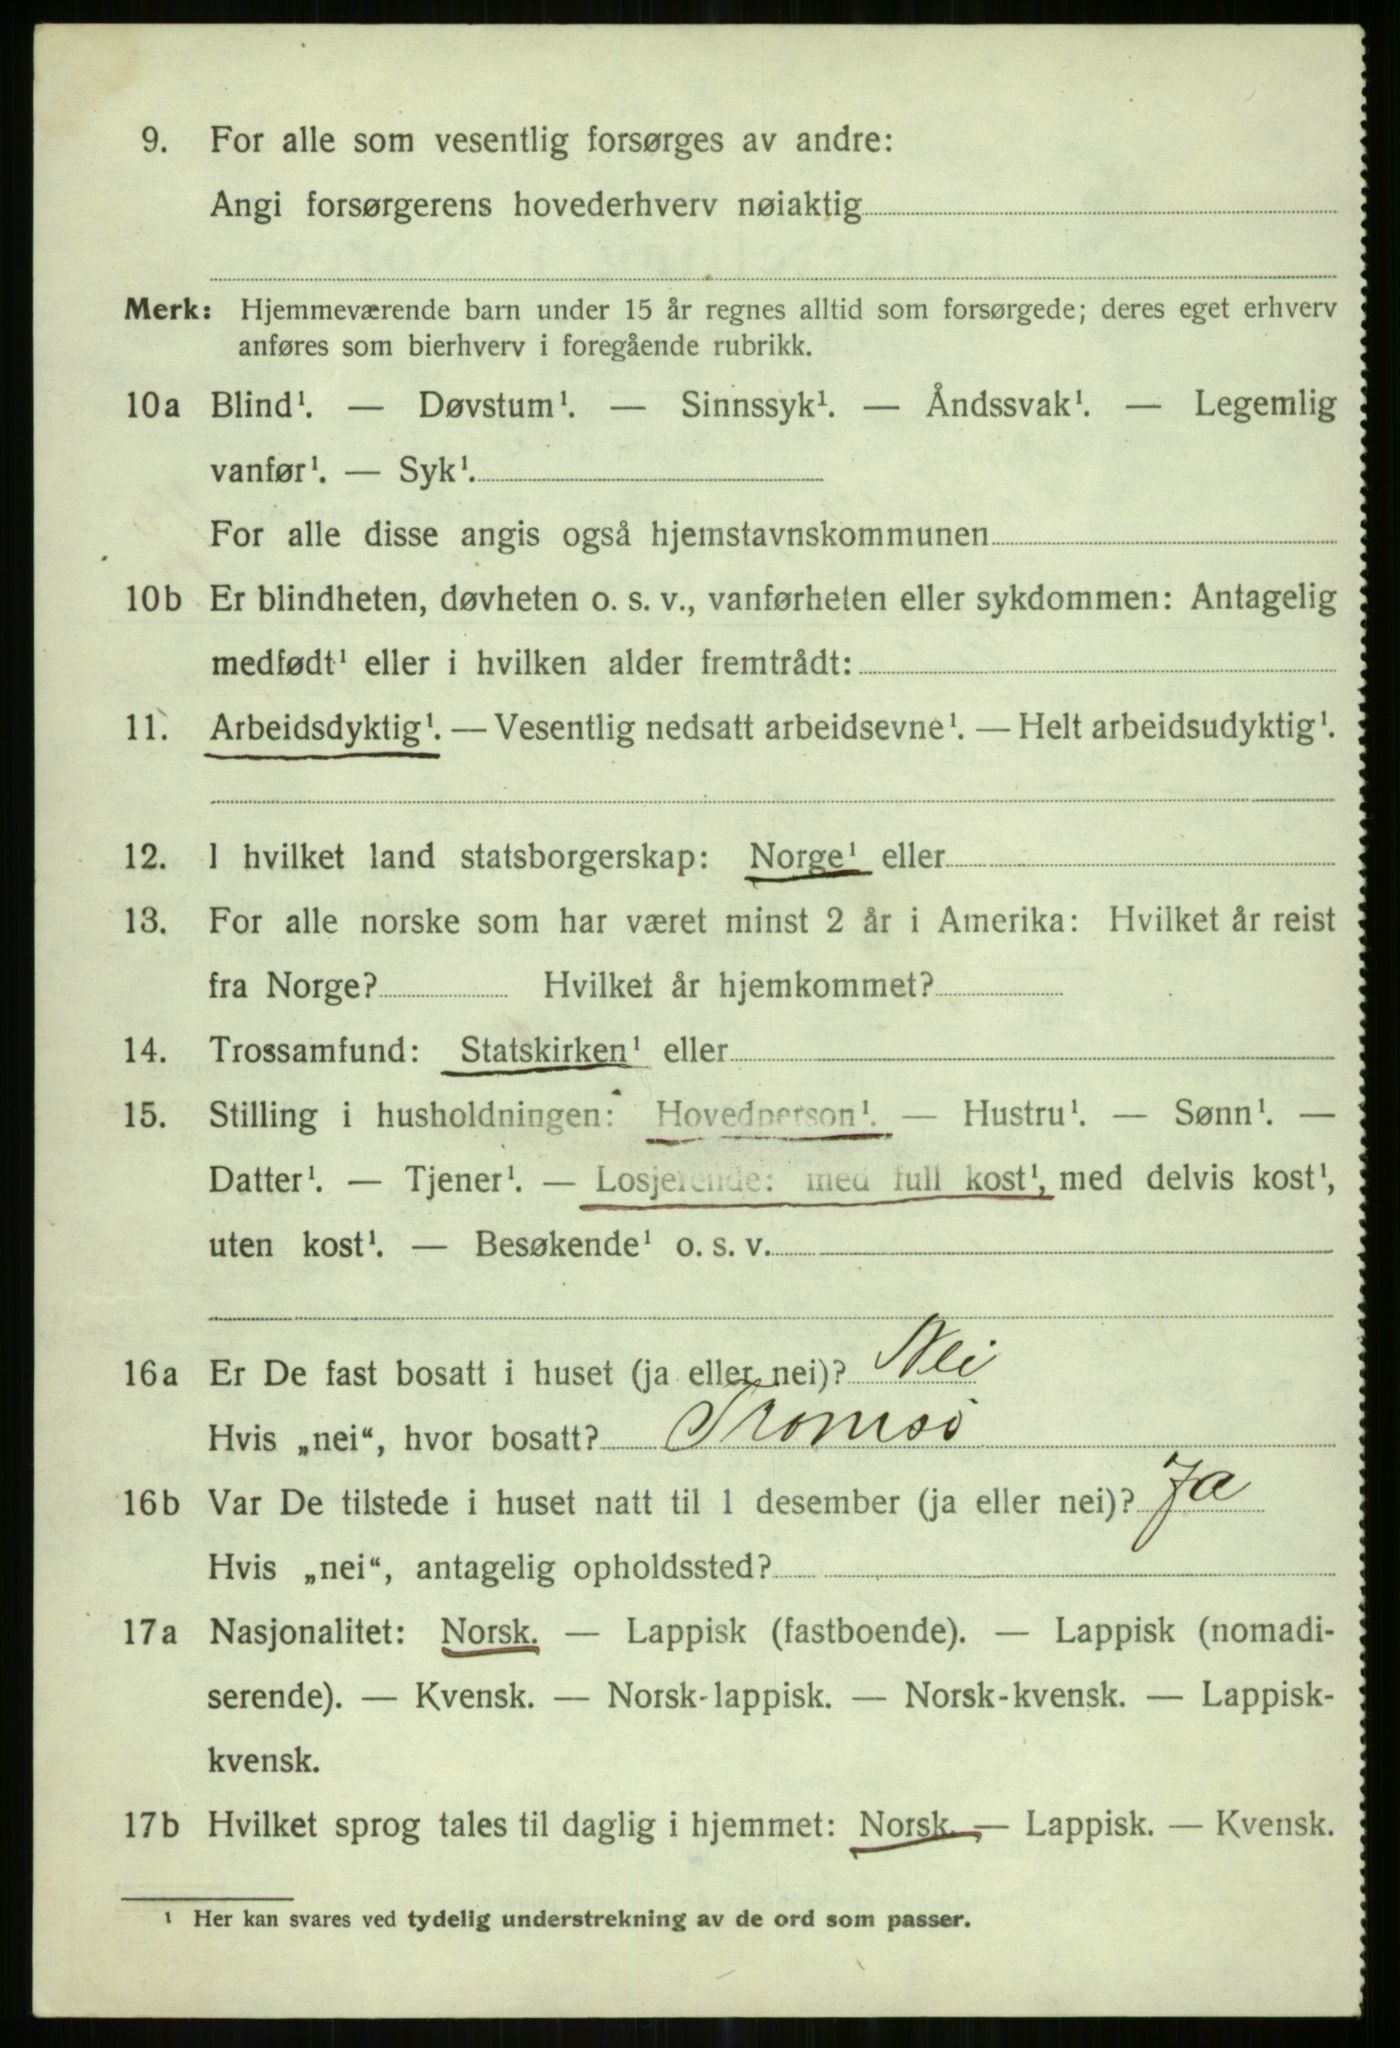 9. For alle som vesentlig forsørges av andre:
Angi forsørgerens hovederhverv nøiaktig
Merk: Hjemmeværende barn under 15 år regnes alltid som forsørgede; deres eget erhverv
anføres som bierhverv i foregående rubrikk.
10a Blind¹. — Døvstum¹. — Sinnssyk¹. — Åndssvak¹. — Legemlig
vanfør¹. — Syk¹.
For alle disse angis også hjemstavnskommunen
10b Er blindheten, døvheten o. s. v., vanførheten eller sykdommen: Antagelig
medfødt¹ eller i hvilken alder fremtrådt:
11. Arbeidsdyktig¹. — Vesentlig nedsatt arbeidsevne¹. — Helt arbeidsudyktig¹.
12. I hvilket land statsborgerskap: Norge¹ eller
13. For alle norske som har været minst 2 år i Amerika: Hvilket år reist
fra Norge? Hvilket år hjemkommet?
14. Trossamfund: Statskirken¹ eller
15. Stilling i husholdningen: Hovedperson¹. — Hustru¹. — Sønn¹. —
Datter¹. — Tjener¹. — Losjerende: med full kost¹, med delvis kost¹,
uten kost¹. — Besøkende¹ o. s. v.
16a Er De fast bosatt i huset (ja eller nei)? Nei
Hvis „nei“, hvor bosatt? Tromsø
16b Var De tilstede i huset natt til 1 desember (ja eller nei)? Ja
Hvis „nei“, antagelig opholdssted?
17a Nasjonalitet: Norsk. — Lappisk (fastboende). — Lappisk (nomadi-
serende). — Kvensk. — Norsk-lappisk. — Norsk-kvensk. — Lappisk-
kvensk.
17b Hvilket sprog tales til daglig i hjemmet: Norsk. — Lappisk. — Kvensk.
¹ Her kan svares ved tydelig understrekning av de ord som passer.